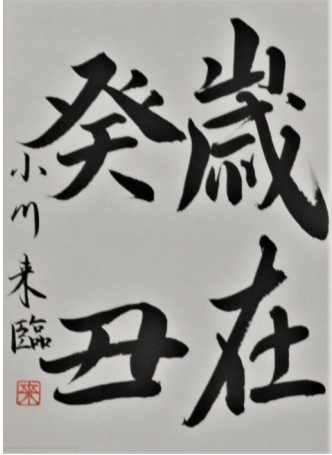 歳在
癸丑
小川来臨
来